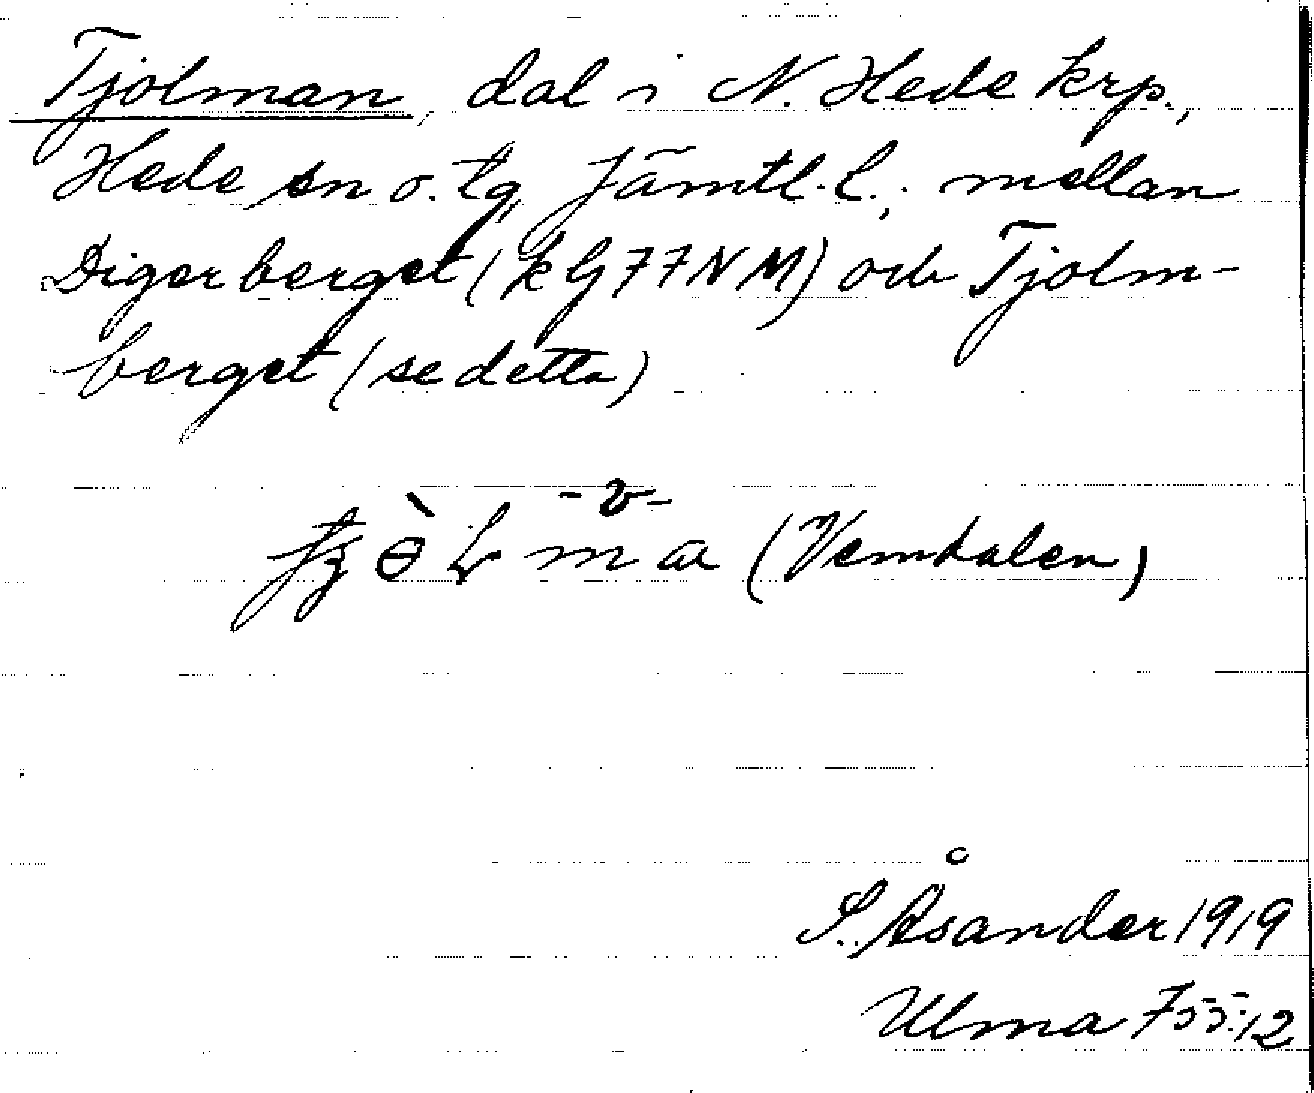 Tjolman, dal i N. Hede krp.,
Hede sn o. tg, Jämtl. l., mellan
Digerberget (k G 77 N M) och Tjolm-
berget (se detta)
-v-
m a (Vemdalen)
S. Åsander 1919
Ulma 755:12